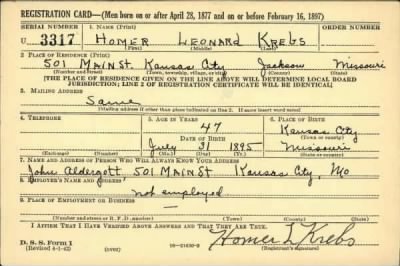 REGISTRATION CARD—(Men born on or after April 28, 1877 and on or before February 16, 1897)
SERIAL NUMBER 1. NAME (Print) ORDER NUMBER
U 3317 HOMER LEONARD KREBS
(First) (Middle) (Last)
2. PLACE OF RESIDENCE (Print)
501 MAIN ST. Kansas City Jackson Missouri
(Number and street) (Town, township, village, or city) (County) (State)
[THE PLACE OF RESIDENCE GIVEN ON THE LINE ABOVE WILL DETERMINE LOCAL BOARD
JURISDICTION; LINE 2 OF REGISTRATION CERTIFICATE WILL BE IDENTICAL]
3. MAILING ADDRESS
Same
[Mailing address if other than place indicated on line 2. If same insert word same]
4. TELEPHONE 5. AGE IN YEARS 6. PLACE OF BIRTH
47 Kansas City
DATE OF BIRTH (Town or county)
July 31 1895 Missouri
(Exchange) (Number) (Mo.) (Day) (Yr.) (State or country)
7. NAME AND ADDRESS OF PERSON WHO WILL ALWAYS KNOW YOUR ADDRESS
John Aldergott 501 MAIN ST Kansas City Mo
8. EMPLOYER'S NAME AND ADDRESS
Not employed
9. PLACE OF EMPLOYMENT OR BUSINESS
(Number and street or R. F. D. number) (Town) (County) (State)
I AFFIRM THAT I HAVE VERIFIED ABOVE ANSWERS AND THAT THEY ARE TRUE.
D. S. S. Form 1 Homer L Krebs
(Revised 4-1-42) (over) 16—21630-2 (Registrant's signature)